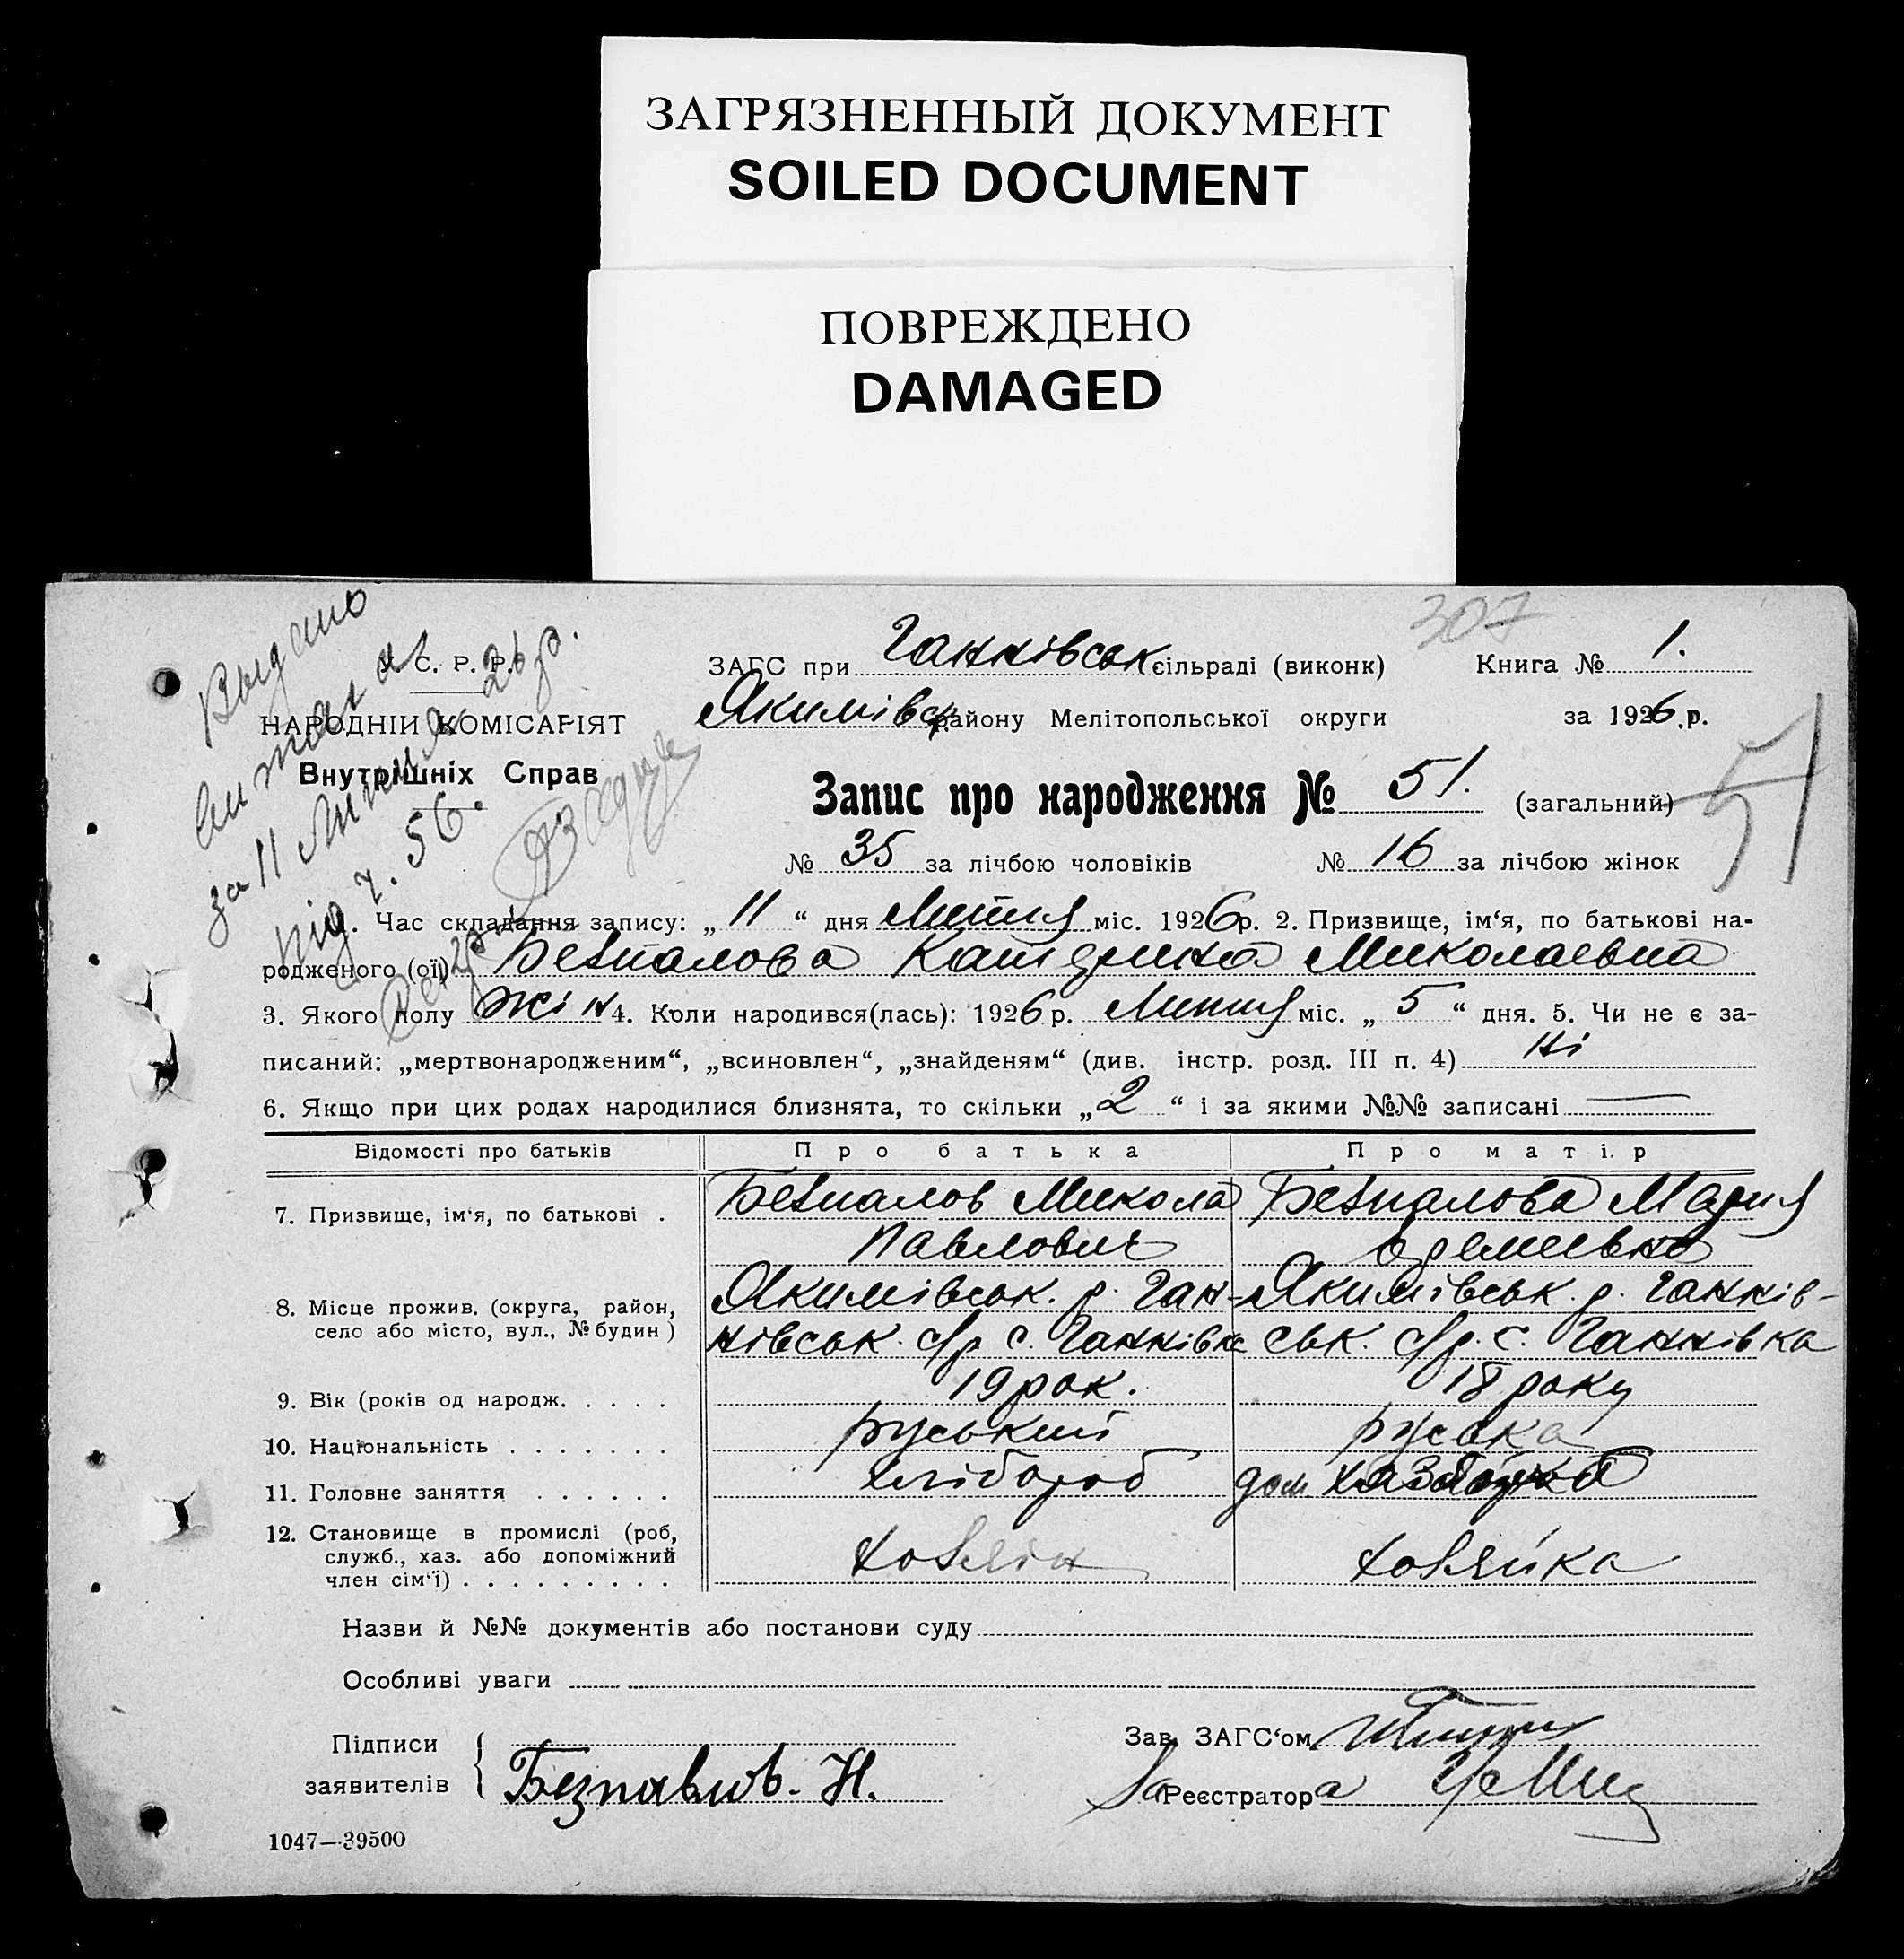 ЗАГРЯЗНЕННЫЙ ДОКУМЕНТ
SOILED DOCUMENT
ПОВРЕЖДЕНО
DAMAGED
307
С. Р. Р.
НАРОДНІЙ КОМІСАРІЯТ
Внутрішніх Справ
ЗАГС при Ганнівськ сільраді (виконк) Книга № 1.
Якимівськ. району Мелітопольської округи за 1926 р.
Запис про народження № 51. (загальний)
51
№ 35 за лічбою чоловіків № 16 за лічбою жінок
Выдано
за 11
7. 56.
1. Час складання запису: „ 11 “ дня Липня міс. 1926 р. 2. Призвище, ім‘я, по батькові на-
родженого (ої) Безпалова Катерина Миколаевна
3. Якого полу жін 4. Коли народився(лась): 1926 р. Липня міс. „ 5 “ дня. 5. Чи не є за-
писаний: „мертвонародженим“, „всиновлен“, „знайденям“ (див. інстр. розд. III п. 4) ні
6. Якщо при цих родах народилися близнята, то скільки „ 2 “ і за якими №№ записані —
Відомості про батьків Про батька Про матір
7. Призвище, ім‘я, по батькові . Безпалов Микола Безпалова Мария
Павлович
8. Місце прожив. (округа, район, Якимівськ. р. Ган- Якимівськ. р. Ганнів-
село або місто, вул., № будин) нівськ. с/р с. Ганнівка ськ. с/р. с. Ганнівка
9. Вік (років од народж. . . . . 19 рок. 18 року
10. Національність . . . . . . . руський руська
11. Головне заняття . . . . . . хлібороб дом
12. Становище в промислі (роб,
служб., хаз. або допоміжний хозяїн хозяйка
член сім‘ї) . . . . . . . . .
Назви й №№ документів або постанови суду
Особливі уваги
Підписи Зав. ЗАГС‘ом
заявителів Безпалов. Н. За Реєстратора
1047—39500